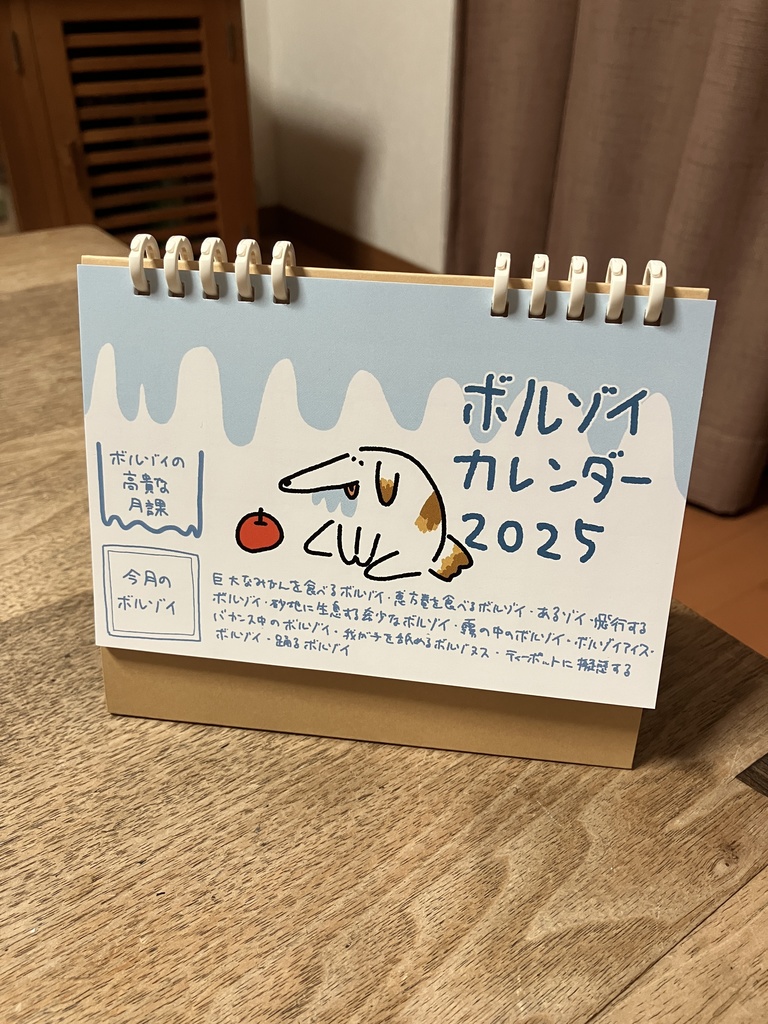 ボルゾイ
カレンダー
2025
ボルゾイの
高貴な
月課
今月の
ボルゾイ
巨大なみかんを食べるボルゾイ・恵方巻を食べるボルゾイ・あるゾイ・飛行する
ボルゾイ・砂地に生息する希少なボルゾイ・霧の中のボルゾイ・ボルゾイアイス・
バカンス中のボルゾイ・我が子を舐めるボルゾヌス・ティーポットに擬態する
ボルゾイ・踊るボルゾイ